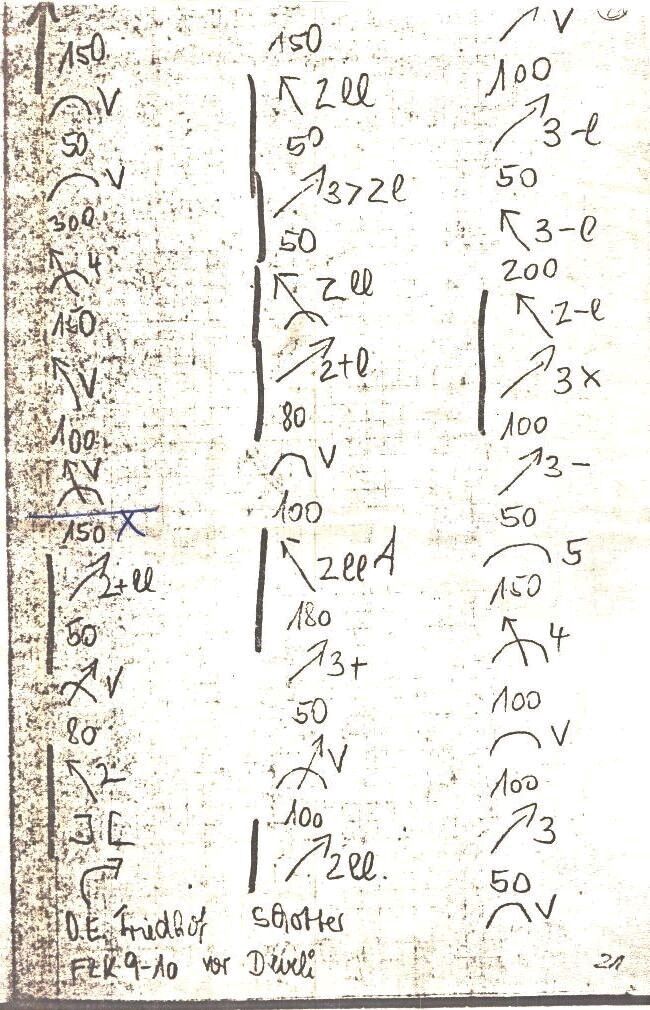 150
V
50
V
300
4
150
V
100
V
150 X
2+ll
50
V
80
2
][
O.E. Friedhof Schotter
FZK 9-10 vor Develi
150
2ll
50
3>2l
50
2ll
2+l
80
V
100
2ll
180
3+
50
V
100
2ll.
V
100
3-l
50
3-l
200
2-l
3x
100
3-
50
5
150
4
100
V
100
3
50
V
21